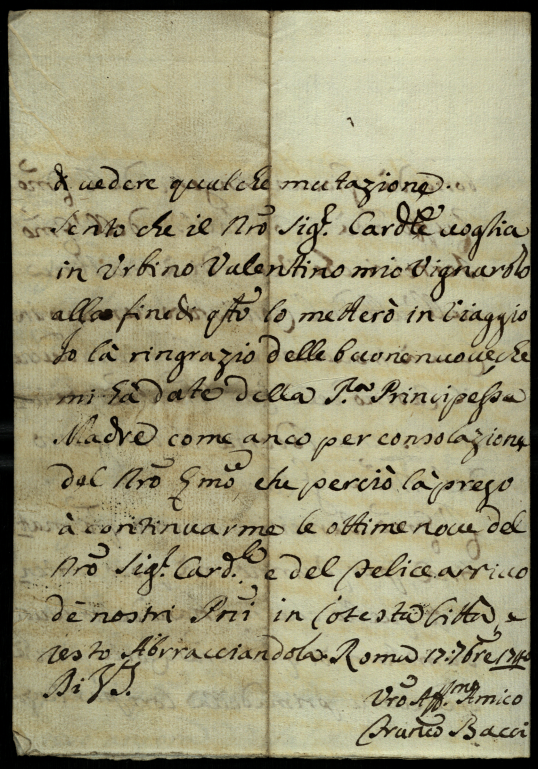 di vedere qualche mutazione.
Sento che il Nrõ Sig.r Card.le voglia
in Urbino Valentino mio Vignarolo
alla fine di qto lo metterò in viaggio
Io là ringrazio delle buone nuove che
mi hà date della Principessa
Madre come anco per consolazione
del Nrõ Emõ, che perciò là prego
à continuarme le ottime nove del
Nrõ Sig.r Card.le e del felice arrivo
de nostri Pñi in Cotesta Città, e
resto Abrracciandola Roma 17. 7bre
Di V.S.
Vrõ Aff.mo Amico
Franco Bacci